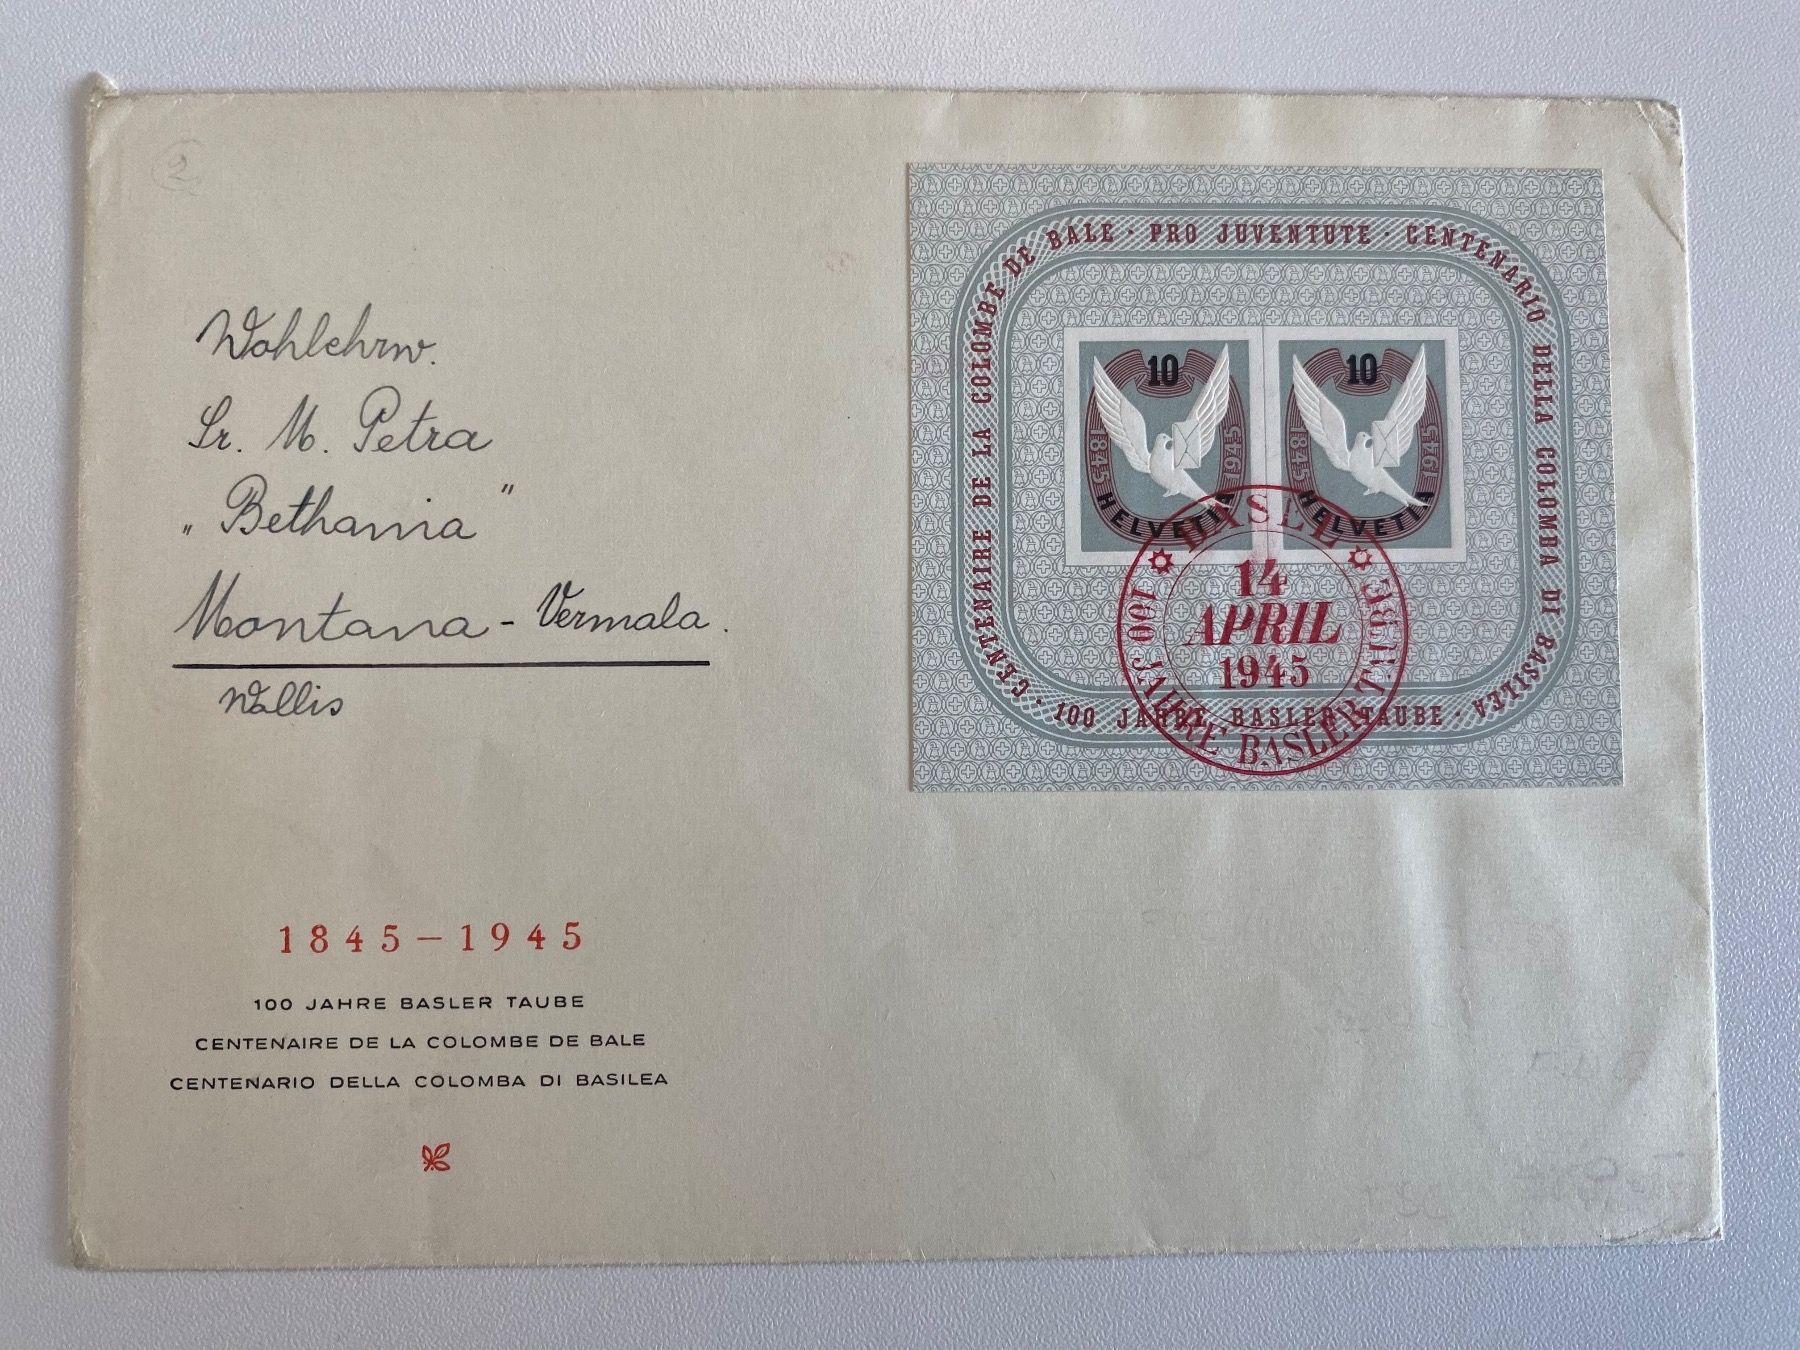 2
Wohlehrw.
Sr. M. Petra
„Bethania"
Montana-Vermala.
Wallis
1845–1945
100 JAHRE BASLER TAUBE
CENTENAIRE DE LA COLOMBE DE BALE
CENTENARIO DELLA COLOMBA DI BASILEA
CENTENAIRE DE LA COLOMBE DE BALE · PRO JUVENTUTE · CENTENARIO DELLA COLOMBA DI BASILEA ·
100 JAHRE BASLER TAUBE ·
10
1845 1945
HELVETIA
10
1845 1945
HELVETIA
BASEL
14
APRIL
1945
100 JAHRE BASLER TAUBE